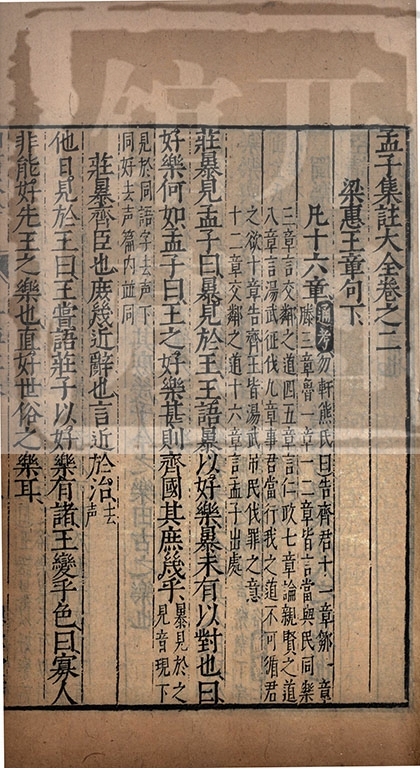 孟子集註大全卷之二
梁惠王章句下
凡十六章通考勿軒熊氏曰告齊君十一章鄒一章
滕三章魯一章一二章皆言當與民同樂
三章言交鄰之道四五章言仁政七章論親賢之道
八章言湯武征伐九章事君當行我之道不可循君
之欲十章告齊王皆湯武弔民伐罪之意
十二章交鄰之道十六章言孟子出處
莊暴見孟子曰暴見於王王語暴以好樂暴未有以對也曰
好樂何如孟子曰王之好樂甚則齊國其庶幾乎暴見於之見音現下
見於同語字去声下
同好去声篇内並同
莊暴齊臣也庶幾近辭也言近於治去声
他日見於王曰王嘗語莊子以好樂有諸王變乎色曰寡人
非能好先王之樂也直好世俗之樂耳